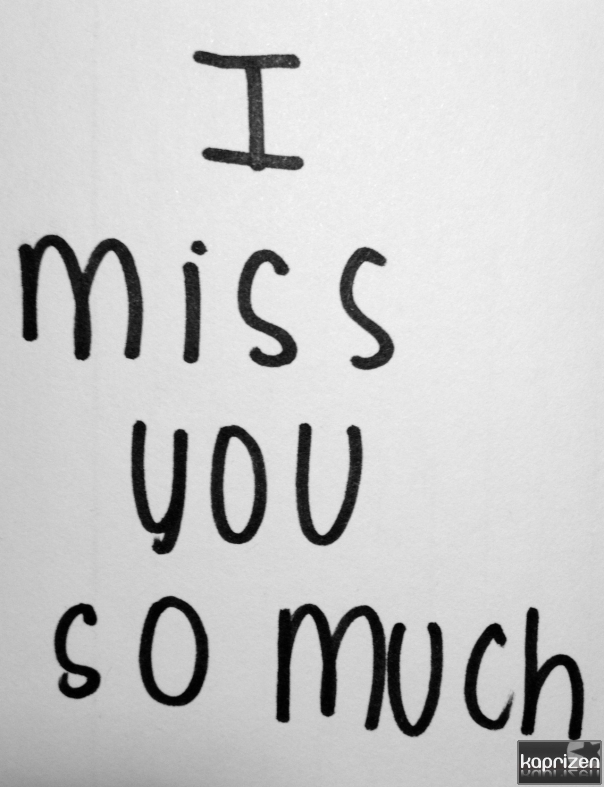 I
miss
you
so much
kaprizen